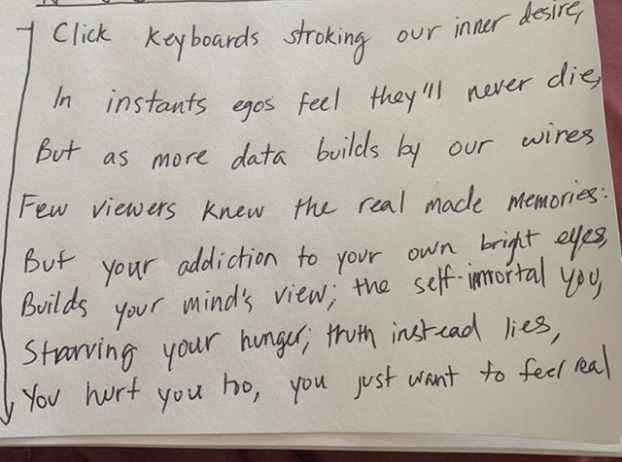 Click keyboards stroking our inner desire,
In instants egos feel they'll never die,
But as more data builds by our wires
Few viewers knew the real made memories:
But your addiction to your own bright eyes,
Builds your mind's view; the self-immortal you,
Starving your hunger; truth instead lies,
You hurt you too, you just want to feel real